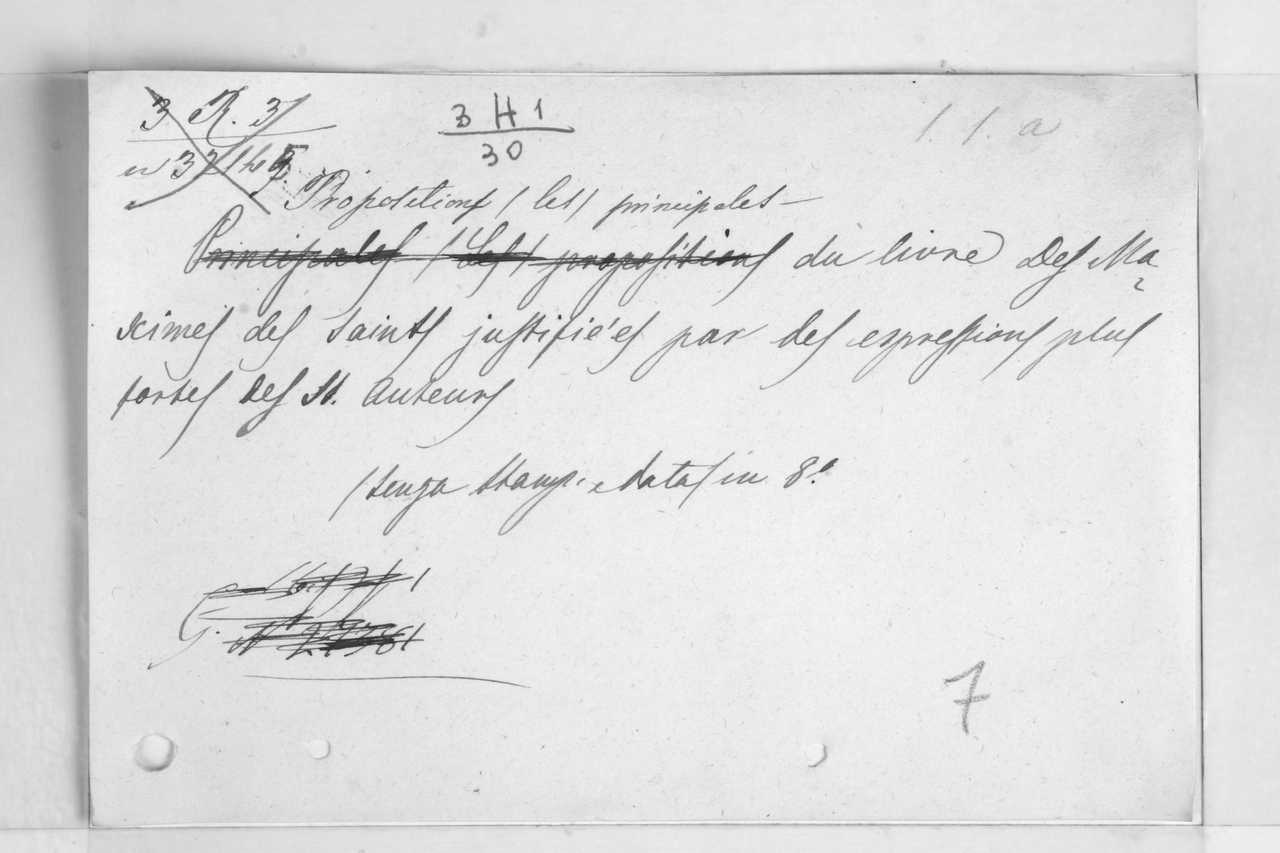 3 R. 3
3 H 1
30
1. 1. a
Propositions (les) principales —
Principales (Les) propositions du livre des Ma
ximes des saints justifiées par des expressions plus
fortes des St. Auteurs
(senza stamp. e data) in 8.º
G.
7